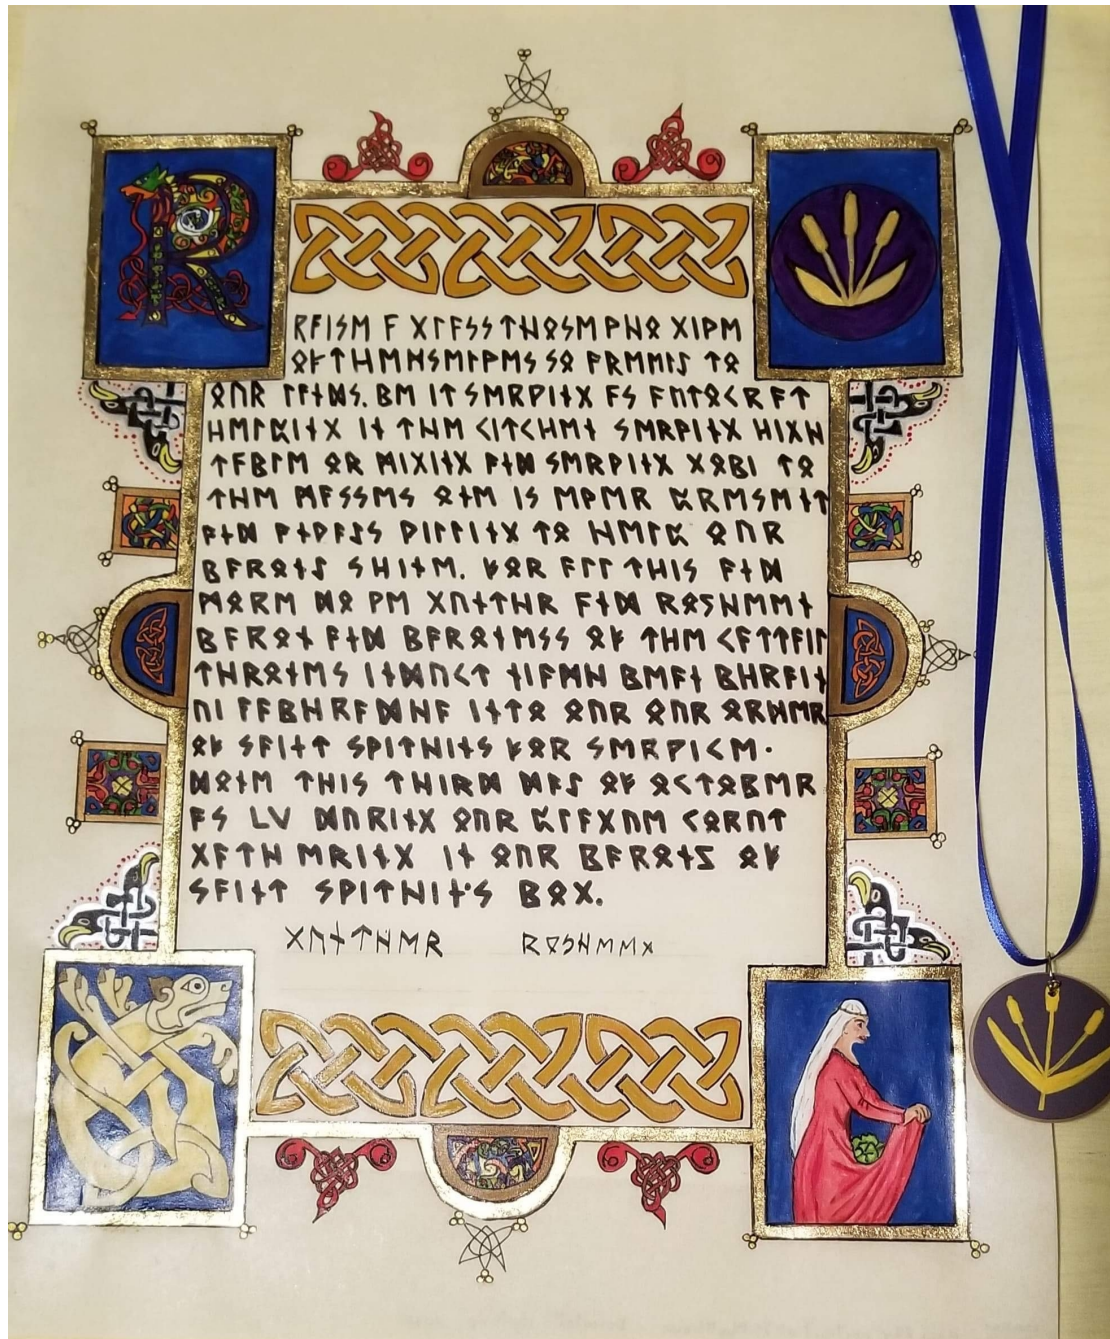 ᚱᚨᛁᛋᛖ ᚨ ᚷᛚᚨᛋᛋ ᛏᚺᛟᛋᛖ ᚹᚺᛟ ᚷᛁᚹᛖ
ᛟᚠ ᛏᚺᛖᛗᛋᛖᛚᚹᛖᛋ ᛋᛟ ᚠᚱᛖᛖᛚᛇ ᛏᛟ
ᛟᚢᚱ ᛚᚨᚾᛞᛋ. ᛒᛖ ᛁᛏ ᛋᛖᚱᚹᛁᚾᚷ ᚨᛋ ᚨᚢᛏᛟᚲᚱᚨᛏ
ᚺᛖᛚᛈᛁᚾᚷ ᛁᚾ ᛏᚺᛖ ᚲᛁᛏᚲᚺᛖᚾ ᛋᛖᚱᚹᛁᚾᚷ ᚺᛁᚷᚺ
ᛏᚨᛒᛚᛖ ᛟᚱ ᛗᛁᚷᛁᚾᚷ ᚨᚾᛞ ᛋᛖᚱᚹᛁᚾᚷ ᚷᛟᛒᛁ ᛏᛟ
ᛏᚺᛖ ᛗᚨᛋᛋᛖᛋ ᛟᚾᛖ ᛁᛋ ᛖᚹᛖᚱ ᛈᚱᛖᛋᛖᚾᛏ
ᚨᚾᛞ ᚨᚾᚹᚨᛇᛋ ᚹᛁᛚᛚᛁᚾᚷ ᛏᛟ ᚺᛖᛚᛈ ᛟᚢᚱ
ᛒᚨᚱᛟᚾᛇ ᛋᚺᛁᚾᛖ. ᚠᛟᚱ ᚨᛚᛚ ᛏᚺᛁᛋ ᚨᚾᛞ
ᛗᛟᚱᛖ ᛞᛟ ᚹᛖ ᚷᚢᚾᛏᚺᚱ ᚨᚾᛞ ᚱᛟᛋᚺᛖᛖᚾ
ᛒᚨᚱᛟᚾ ᚨᚾᛞ ᛒᚨᚱᛟᚾᛖᛋᛋ ᛟᚠ ᛏᚺᛖ ᚲᚨᛏᛏᚨᛁᛚ
ᛏᚺᚱᛟᚾᛖᛋ ᛁᚾᛞᚢᚲᛏ ᚾᛁᚨᛗᚺ ᛒᛖᚨᚾ ᛒᚺᚱᚨᛁᚾ
ᚢᛁ ᚠᚨᛒᚺᚱᚨᛞᚺᚨ ᛁᚾᛏᛟ ᛟᚢᚱ ᛟᚢᚱ ᛟᚱᚺᛖᚱ
ᛟᚠ ᛋᚨᛁᚾᛏ ᛋᚹᛁᛏᚺᛁᚾᛋ ᚠᛟᚱ ᛋᛖᚱᚹᛁᚲᛖ·
ᛞᛟᚾᛖ ᛏᚺᛁᛋ ᛏᚺᛁᚱᛞ ᛞᚨᛇ ᛟᚠ ᛟᚲᛏᛟᛒᛖᚱ
ᚨᛋ LV ᛞᚢᚱᛁᚾᚷ ᛟᚢᚱ ᛈᛚᚨᚷᚢᛖ ᚲᛟᚱᚢᛏ
ᚷᚨᛏᚺ ᛖᚱᛁᚾᚷ ᛁᚾ ᛟᚢᚱ ᛒᚨᚱᛟᚾᛇ ᛟᚠ
ᛋᚨᛁᚾᛏ ᛋᚹᛁᛏᚺᛁᚾ'ᛋ ᛒᛟᚷ.
ᚷᚢᚾᛏᚺᛖᚱ ᚱᛟᛋᚺᛖᛖᚾ